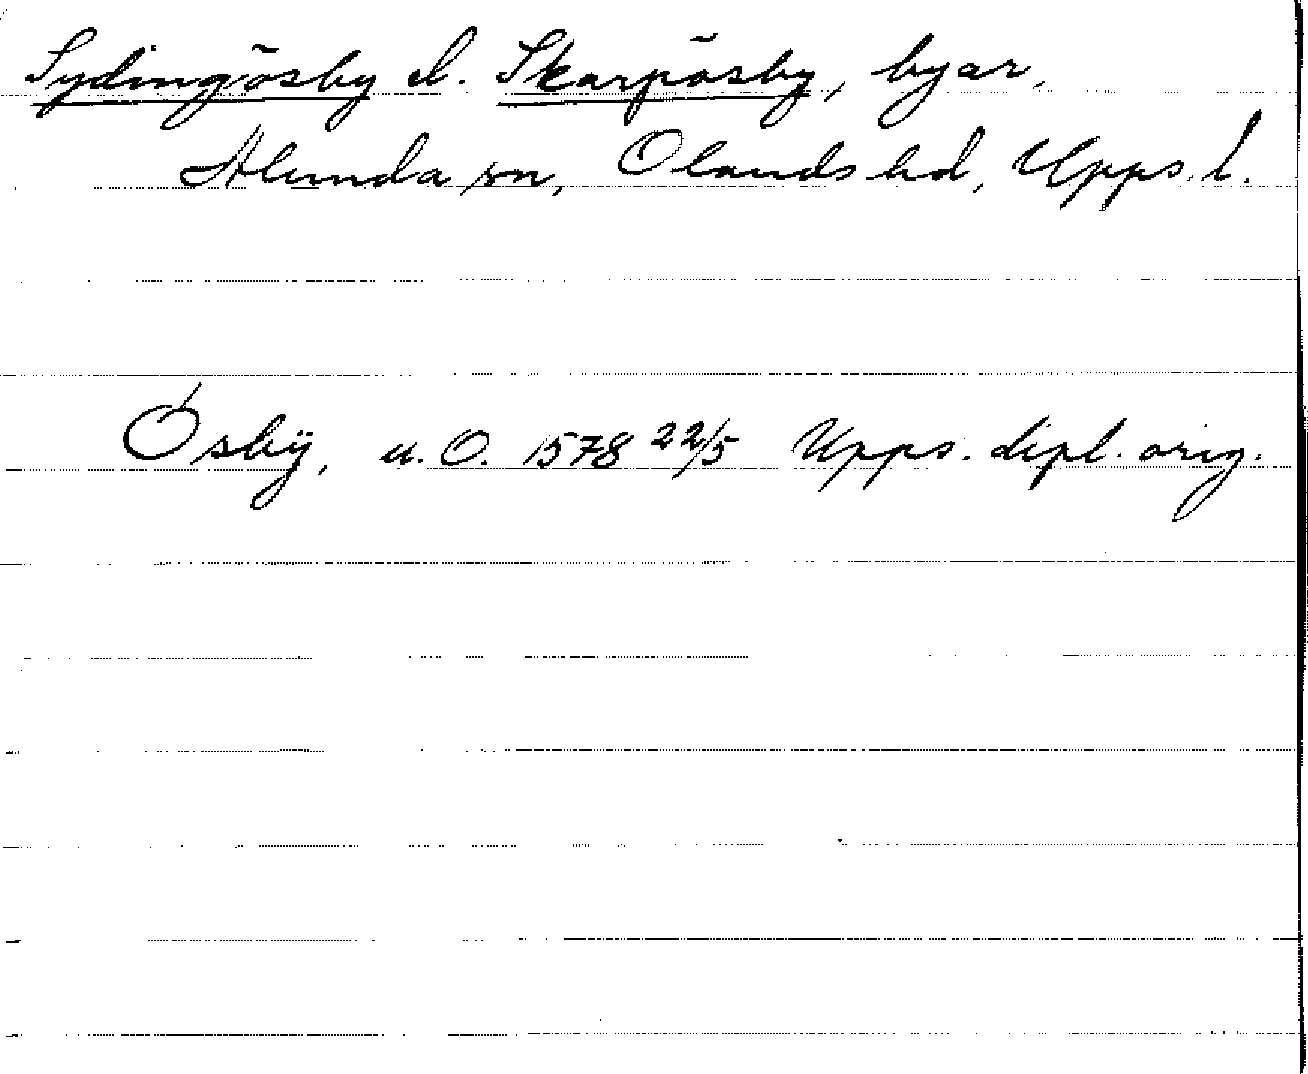 Sydingösby el. Skarpösby, byar,
Alunda sn, Olands hd, Upps. l.
Ösby, u. O. 1578 22/5 Upps. dipl. orig.